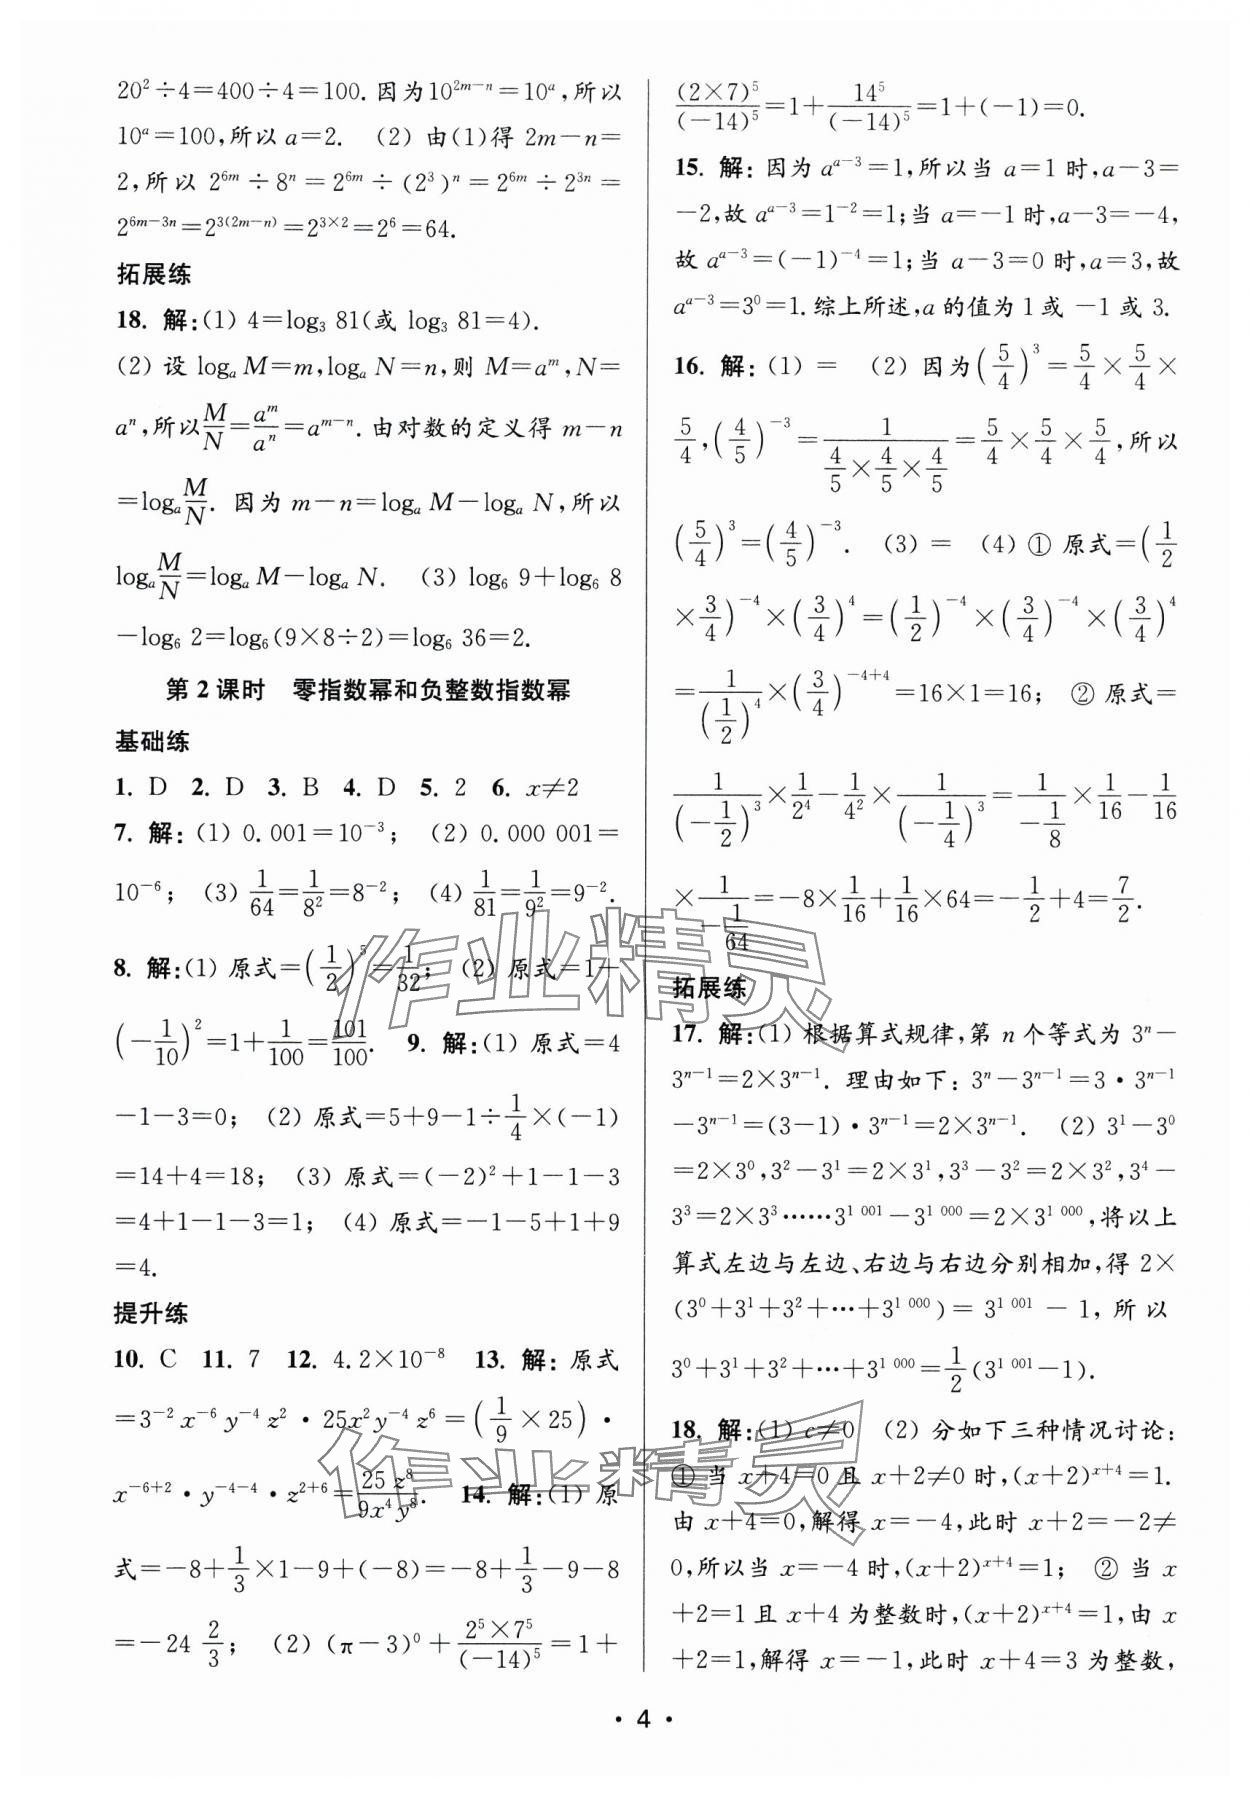 20²÷4=400÷4=100. 因为10^{2m-n}=10^a,所以
10^a=100,所以 a=2. (2) 由(1)得 2m-n=
2,所以 2^{6m}÷8^n=2^{6m}÷(2³)^n=2^{6m}÷2^{3n}=
2^{6m-3n}=2^{3(2m-n)}=2^{3×2}=2⁶=64.
拓展练
18. 解:(1) 4=log₃ 81(或 log₃ 81=4).
(2) 设 log_a M=m,log_a N=n,则 M=a^m,N=
a^n,所以\frac{M}{N}=\frac{a^m}{a^n}=a^{m-n}. 由对数的定义得 m-n
=log_a\frac{M}{N}. 因为 m-n=log_a M-log_a N,所以
log_a\frac{M}{N}=log_a M-log_a N. (3) log₆ 9+log₆ 8
-log₆ 2=log₆(9×8÷2)=log₆ 36=2.
第2课时 零指数幂和负整数指数幂
基础练
1. D 2. D 3. B 4. D 5. 2 6. x≠2
7. 解:(1) 0.001=10^{-3}; (2) 0.000 001=
10^{-6}; (3) \frac{1}{64}=\frac{1}{8²}=8^{-2}; (4) \frac{1}{81}=\frac{1}{9²}=9^{-2}.
8. 解:(1) 原式=(\frac{1}{2})^5=\frac{1}{32}; (2) 原式=1+
(-\frac{1}{10})²=1+\frac{1}{100}=\frac{101}{100}. 9. 解:(1) 原式=4
-1-3=0; (2) 原式=5+9-1÷\frac{1}{4}×(-1)
=14+4=18; (3) 原式=(-2)²+1-1-3
=4+1-1-3=1; (4) 原式=-1-5+1+9
=4.
提升练
10. C 11. 7 12. 4.2×10^{-8} 13. 解: 原式
=3^{-2} x^{-6} y^{-4} z²·25x²y^{-4} z⁶=(\frac{1}{9}×25)·
x^{-6+2}·y^{-4-4}·z^{2+6}=\frac{25 z⁸}{9x⁴y⁸}. 14. 解:(1) 原
式=-8+\frac{1}{3}×1-9+(-8)=-8+\frac{1}{3}-9-8
=-24 \frac{2}{3}; (2) (π-3)⁰+\frac{2⁵×7⁵}{(-14)⁵}=1+
\frac{(2×7)⁵}{(-14)⁵}=1+\frac{14⁵}{(-14)⁵}=1+(-1)=0.
15. 解: 因为 a^{a-3}=1,所以当 a=1 时,a-3=
-2,故 a^{a-3}=1^{-2}=1;当 a=-1 时,a-3=-4,
故 a^{a-3}=(-1)^{-4}=1;当 a-3=0 时,a=3,故
a^{a-3}=3⁰=1. 综上所述,a 的值为 1 或 -1 或 3.
16. 解:(1) = (2) 因为(\frac{5}{4})³=\frac{5}{4}×\frac{5}{4}×
\frac{5}{4},(\frac{4}{5})^{-3}=\frac{1}{\frac{4}{5}×\frac{4}{5}×\frac{4}{5}}=\frac{5}{4}×\frac{5}{4}×\frac{5}{4},所以
(\frac{5}{4})³=(\frac{4}{5})^{-3}. (3) = (4) ① 原式=(\frac{1}{2}
×\frac{3}{4})^{-4}×(\frac{3}{4})⁴=(\frac{1}{2})^{-4}×(\frac{3}{4})^{-4}×(\frac{3}{4})⁴
=\frac{1}{(\frac{1}{2})⁴}×(\frac{3}{4})^{-4+4}=16×1=16; ② 原式=
\frac{1}{(-\frac{1}{2})³}×\frac{1}{2⁴}-\frac{1}{4²}×\frac{1}{(-\frac{1}{4})³}=\frac{1}{-\frac{1}{8}}×\frac{1}{16}-\frac{1}{16}
×\frac{1}{-\frac{1}{64}}=-8×\frac{1}{16}+\frac{1}{16}×64=-\frac{1}{2}+4=\frac{7}{2}.
拓展练
17. 解:(1) 根据算式规律,第 n 个等式为 3^n-
3^{n-1}=2×3^{n-1}. 理由如下: 3^n-3^{n-1}=3·3^{n-1}
-3^{n-1}=(3-1)·3^{n-1}=2×3^{n-1}. (2) 3¹-3⁰
=2×3⁰,3²-3¹=2×3¹,3³-3²=2×3²,3⁴-
3³=2×3³……3^{1 001}-3^{1 000}=2×3^{1 000},将以上
算式左边与左边、右边与右边分别相加,得 2×
(3⁰+3¹+3²+…+3^{1 000})=3^{1 001}-1,所以
3⁰+3¹+3²+…+3^{1 000}=\frac{1}{2}(3^{1 001}-1).
18. 解:(1) c≠0 (2) 分如下三种情况讨论:
① 当 x+4=0 且 x+2≠0 时,(x+2)^{x+4}=1.
由 x+4=0,解得 x=-4,此时 x+2=-2≠
0,所以当 x=-4 时,(x+2)^{x+4}=1; ② 当 x
+2=1 且 x+4 为整数时,(x+2)^{x+4}=1,由 x
+2=1,解得 x=-1,此时 x+4=3 为整数,
·4·
作业精灵
作业精灵